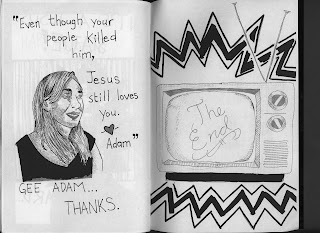 "Even though your
people killed
him,
Jesus
still loves
you.
Adam"
GEE ADAM...
THANKS.
The
End